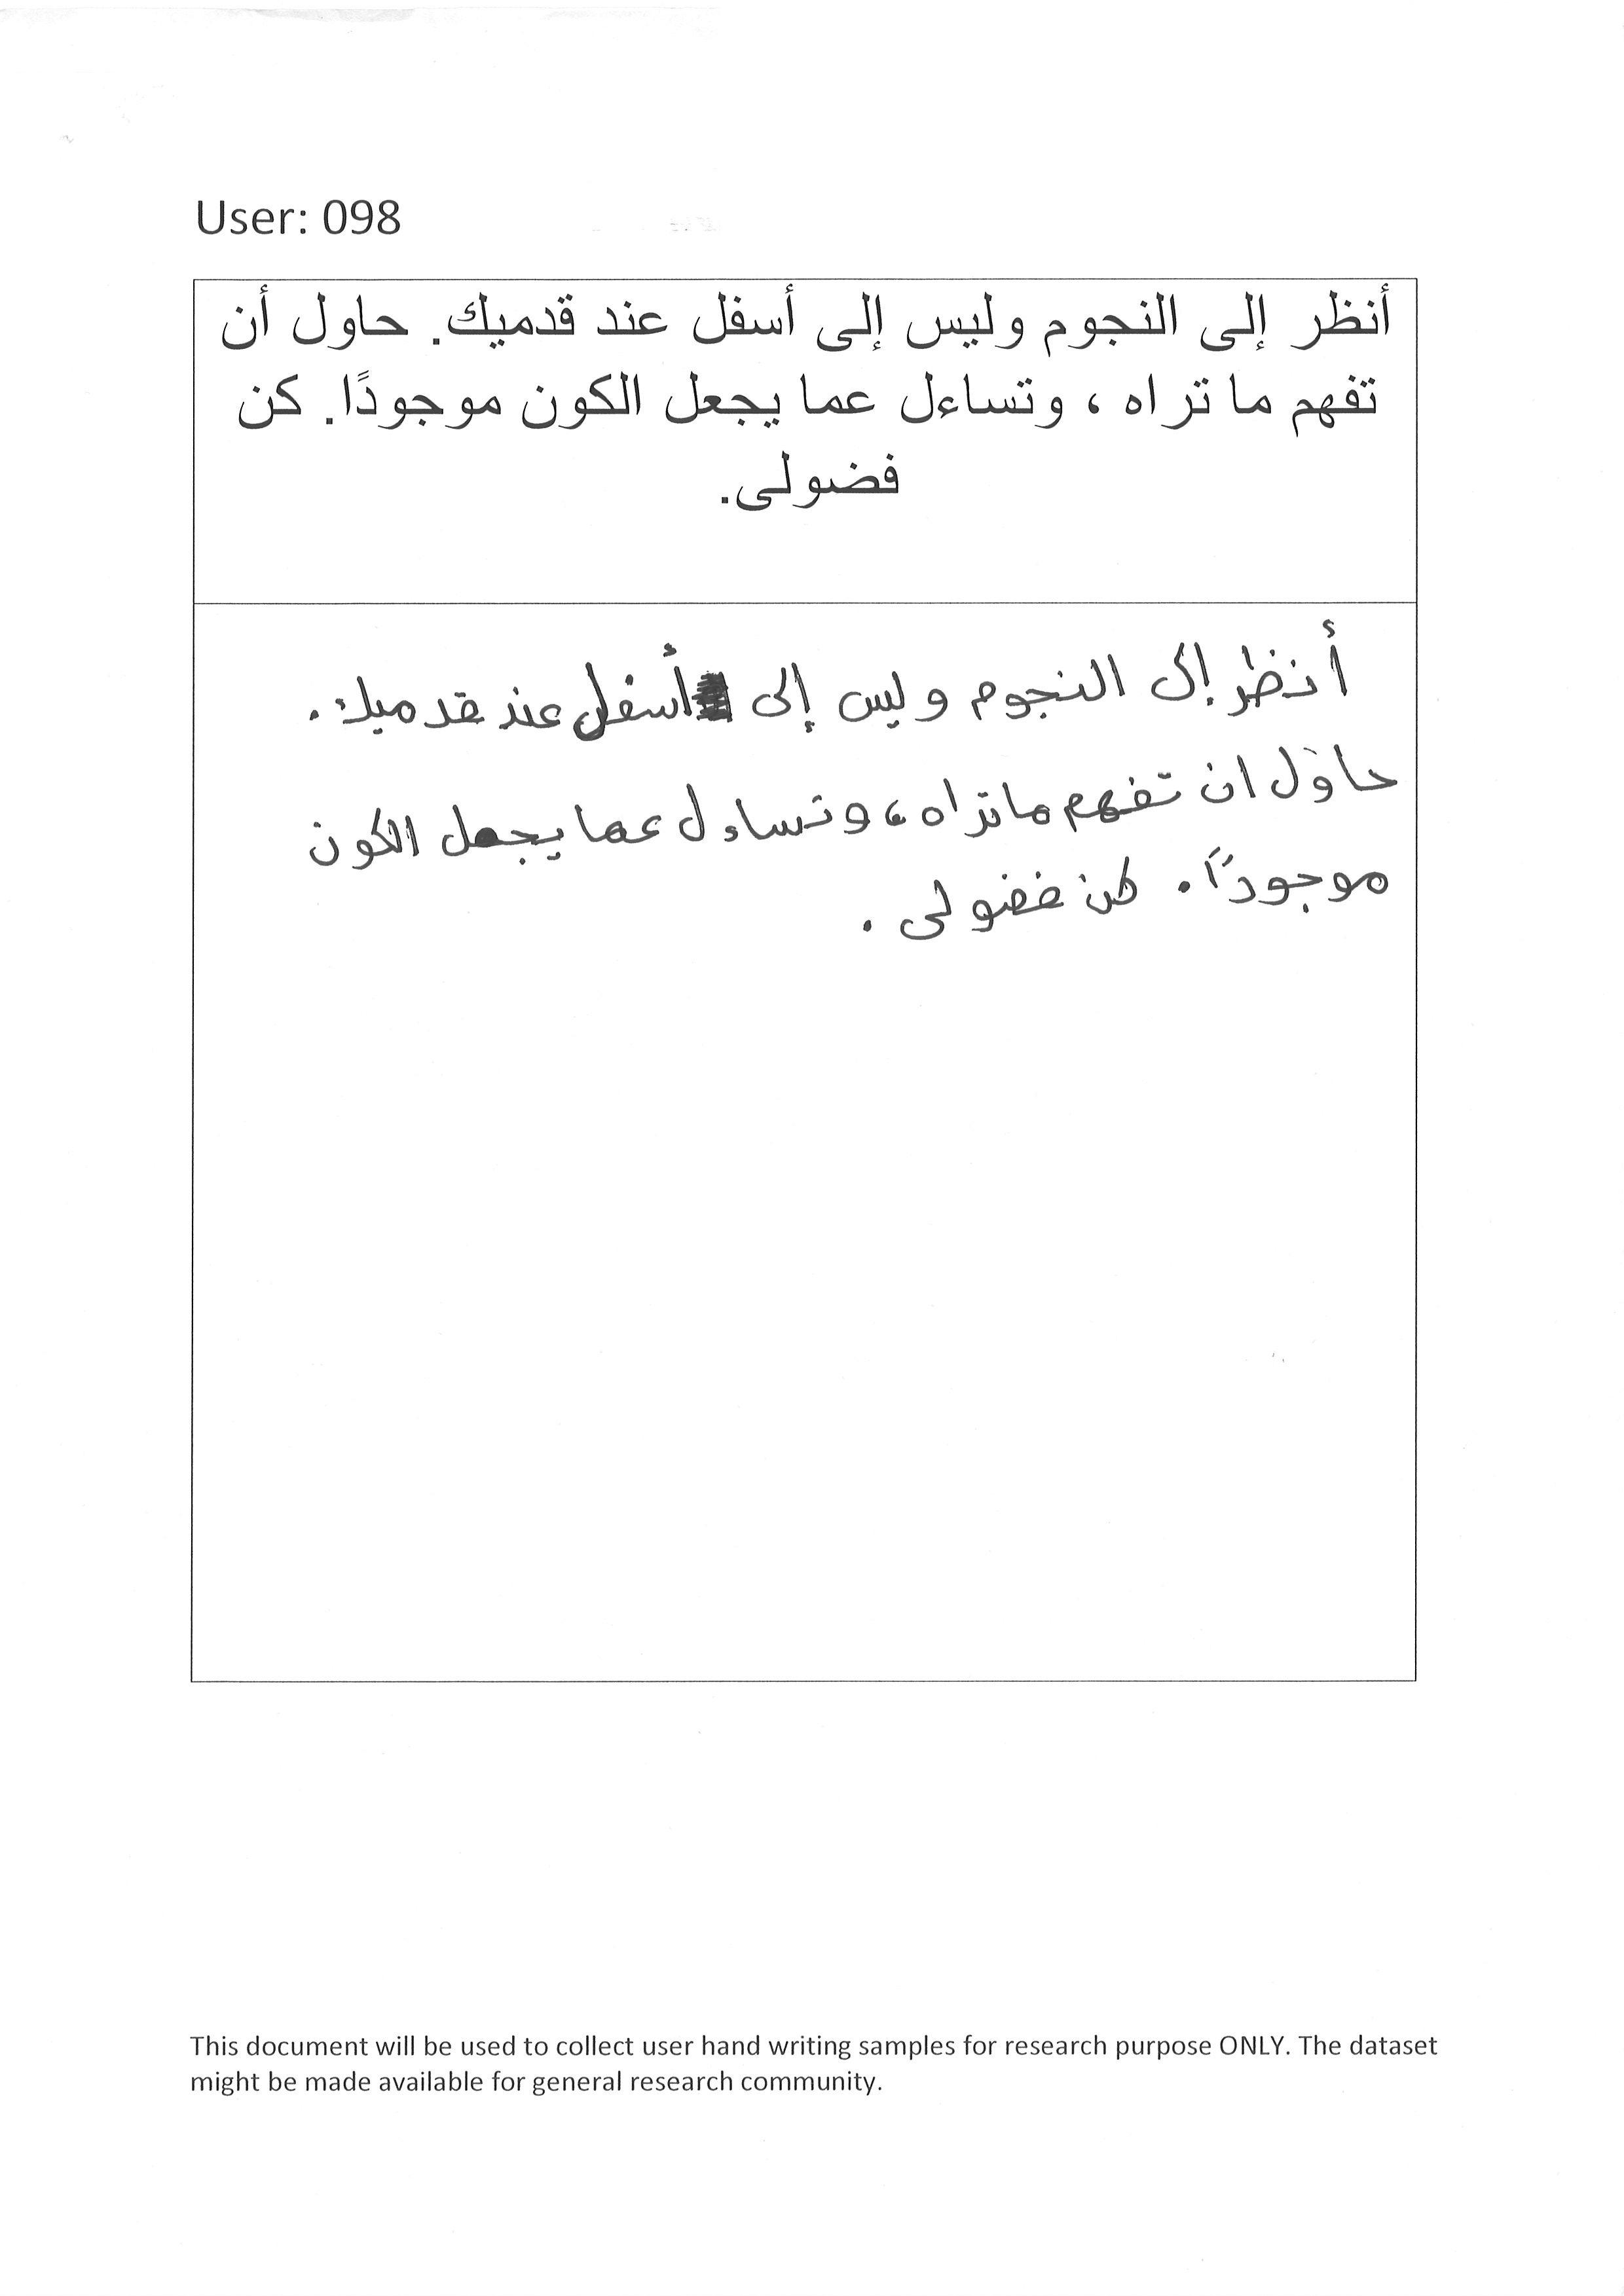 User: 098
أنظر إلى النجوم وليس إلى أسفل عند قدميك. حاول أن
تفهم ما تراه ، وتساءل عما يجعل الكون موجودًا. كن
فضولى.
أنظر إلى النجوم وليس إلى أسفل عند قدميك.
حاول ان تفهم ماتراه ، وتساءل عما يجعل الكون
موجودًا. كن فضولى.
This document will be used to collect user hand writing samples for research purpose ONLY. The dataset
might be made available for general research community.